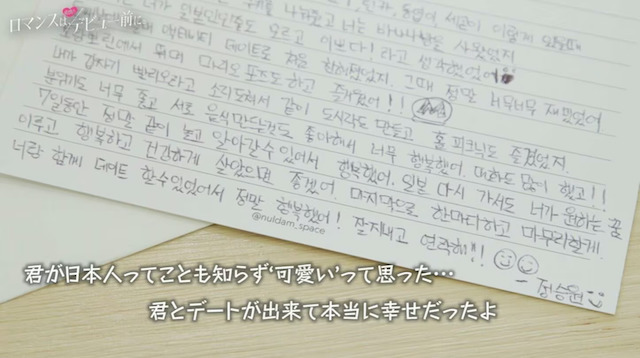 ロマンスは、デビュー前に。
너가 일본인인줄도 모르고 이쁘다! 라고 생각했었어
데이트로 처음 그때 정말 너무너무 재밌었어
뛰며 마리오 포즈도 하고 즐거웠어!!
너가 갑자기 소리도쳐서 같이 도시락도 만들고 홈 피크닉도 즐겼었지.
분위기도 너무 좋고 서로 음식만드는것도 좋아해서 너무 행복했어. 대화도 많이 했고!!
7일동안 정말 같이 놀고 알아갈수 있어서 행복했어. 일본 다시 가서도 너가 원하는 꿈
이루고 행복하고 건강하게 살았으면 좋겠어. 마지막으로 한마디하고 마무리할게.
너랑 함께 데이트 할수있었어서 정말 행복했어! 잘지내고 연락해!!
@nuldam_space
- 정승원
君が日本人ってことも知らず‘可愛い’って思った…
君とデートが出来て本当に幸せだったよ